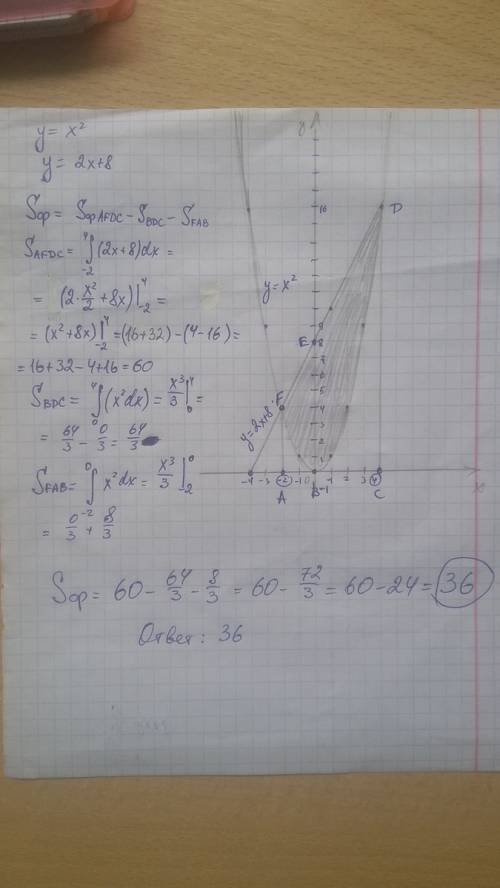 y = x²
y = 2x+8
Sφ = Sφ AFDC − S BDC − S FAB
S AFDC = ⁴∫₋₂ (2x+8)dx =
= (2·x²/2 + 8x)|⁴₋₂ =
= (x²+8x)|⁴₋₂ = (16+32)−(4−16) =
= 16+32−4+16 = 60
S BDC = ⁴∫₀ (x²dx) = x³/3|⁴₀ =
= 64/3 − 0/3 = 64/3
S FAB = ⁰∫₋₂ x²dx = x³/3|⁰₂
= 0/3 + 8/3
Sφ = 60 − 64/3 − 8/3 = 60 − 72/3 = 60−24 = 36
Ответ: 36
y
16
D
y = x²
9
E 8
7
6
5
F
4
y=2x+8
3
2
1
-4 -3 -2 -1 0 1 2 3 4 x
A B -1 C